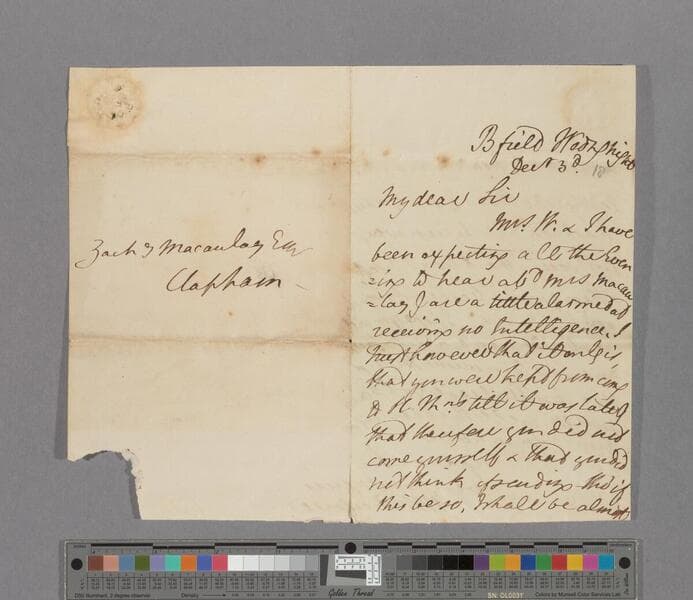 Zachy Macaulay Esq
Clapham
Bfield Wedy night
Decr 3d. 18
My dear Sir
Mrs. W. & I have
been expecting all the Even
=ing to hear abt Mrs Macau
=lay & are a little alarmed at
receiving no Intelligence. I
trust however that it only is
that you were kept from coming
to H. Th:n's till it was late &
that therefore you did not
come yourself & that you did
not think of sending tho' if
this be so, I shall be almost